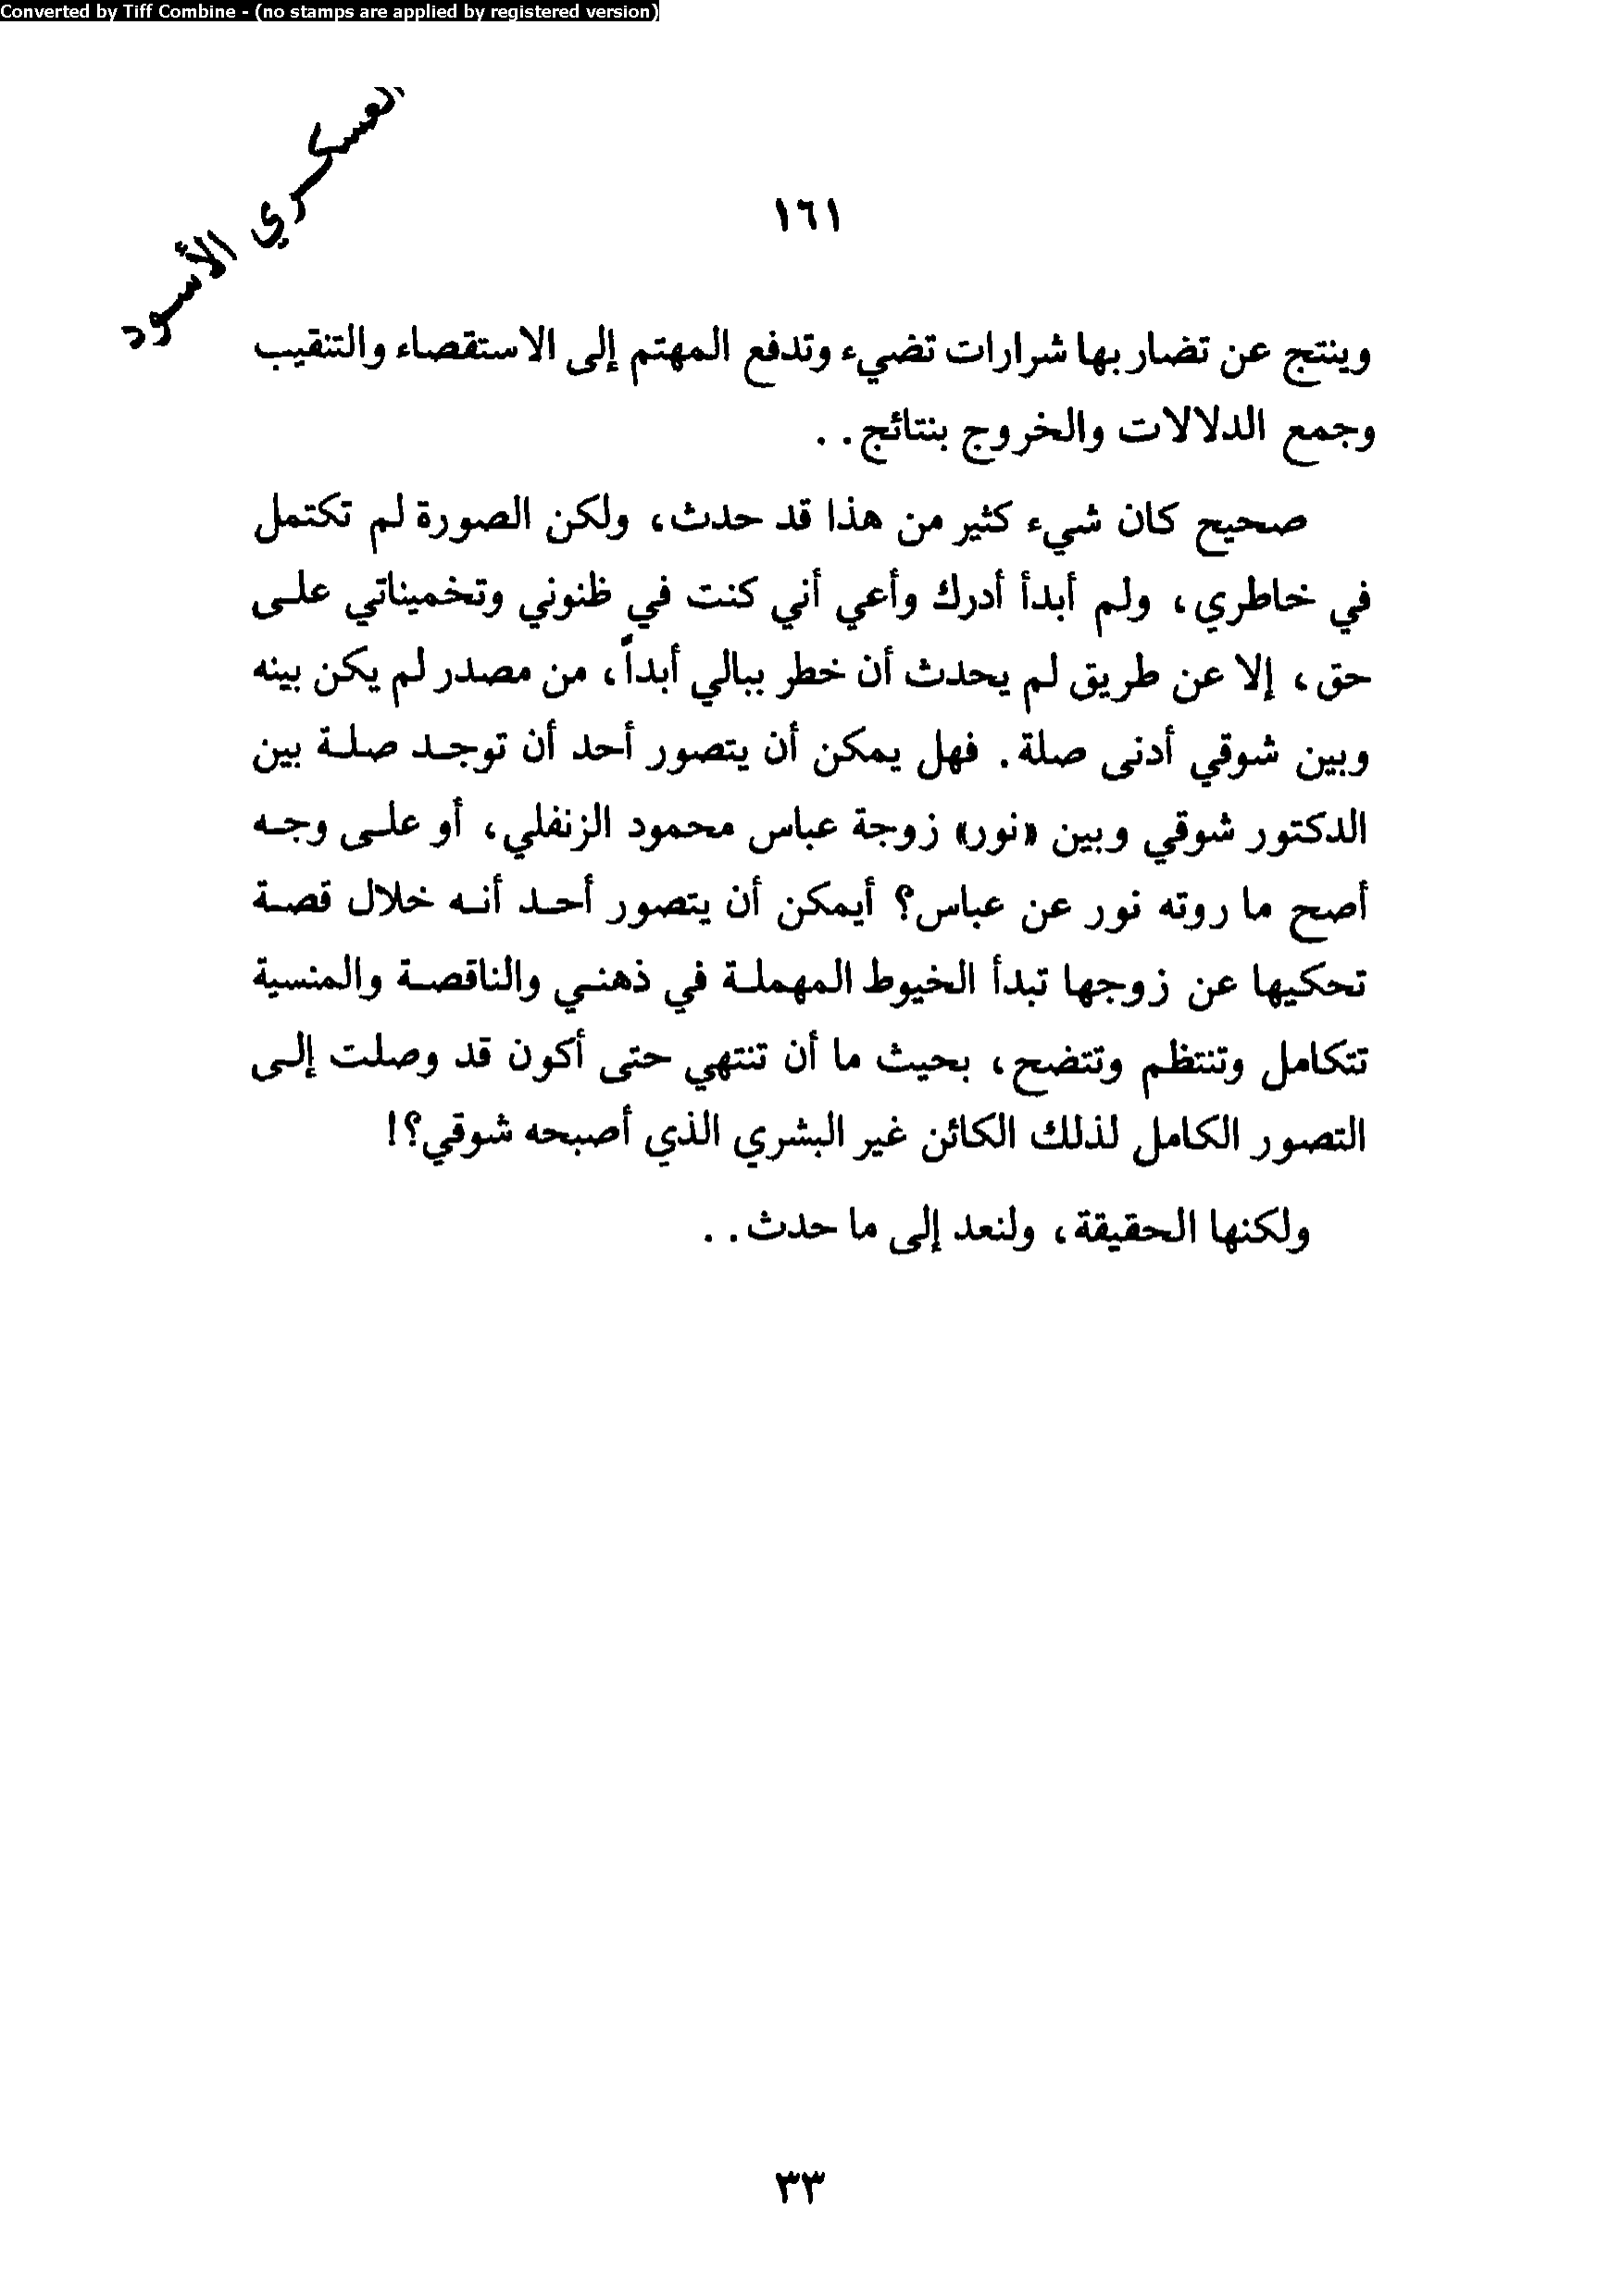 Converted by Tiff Combine - (no stamps are applied by registered version)
العسكري الأسود
١٦١
وينتج عن تضاربها شرارات تضيء وتدفع المهتم إلى الاستقصاء والتنقيب
وجمع الدلالات والخروج بنتائج. .
صحيح كان شيء كثير من هذا قد حدث، ولكن الصورة لم تكتمل
في خاطري، ولم أبدأ أدرك وأعي أني كنت في ظنوني وتخميناتي على
حق، إلا عن طريق لم يحدث أن خطر ببالي أبداً، من مصدر لم يكن بينه
وبين شوقي أدنى صلة. فهل يمكن أن يتصور أحد أن توجد صلة بين
الدكتور شوقي وبين «نور» زوجة عباس محمود الزنفلي، أو على وجه
أصح ما روته نور عن عباس؟ أيمكن أن يتصور أحد أنه خلال قصة
تحكيها عن زوجها تبدأ الخيوط المهملة في ذهني والناقصة والمنسية
تتكامل وتنتظم وتتضح، بحيث ما أن تنتهي حتى أكون قد وصلت إلى
التصور الكامل لذلك الكائن غير البشري الذي أصبحه شوقي؟!
ولكنها الحقيقة، ولنعد إلى ما حدث. .
٣٣